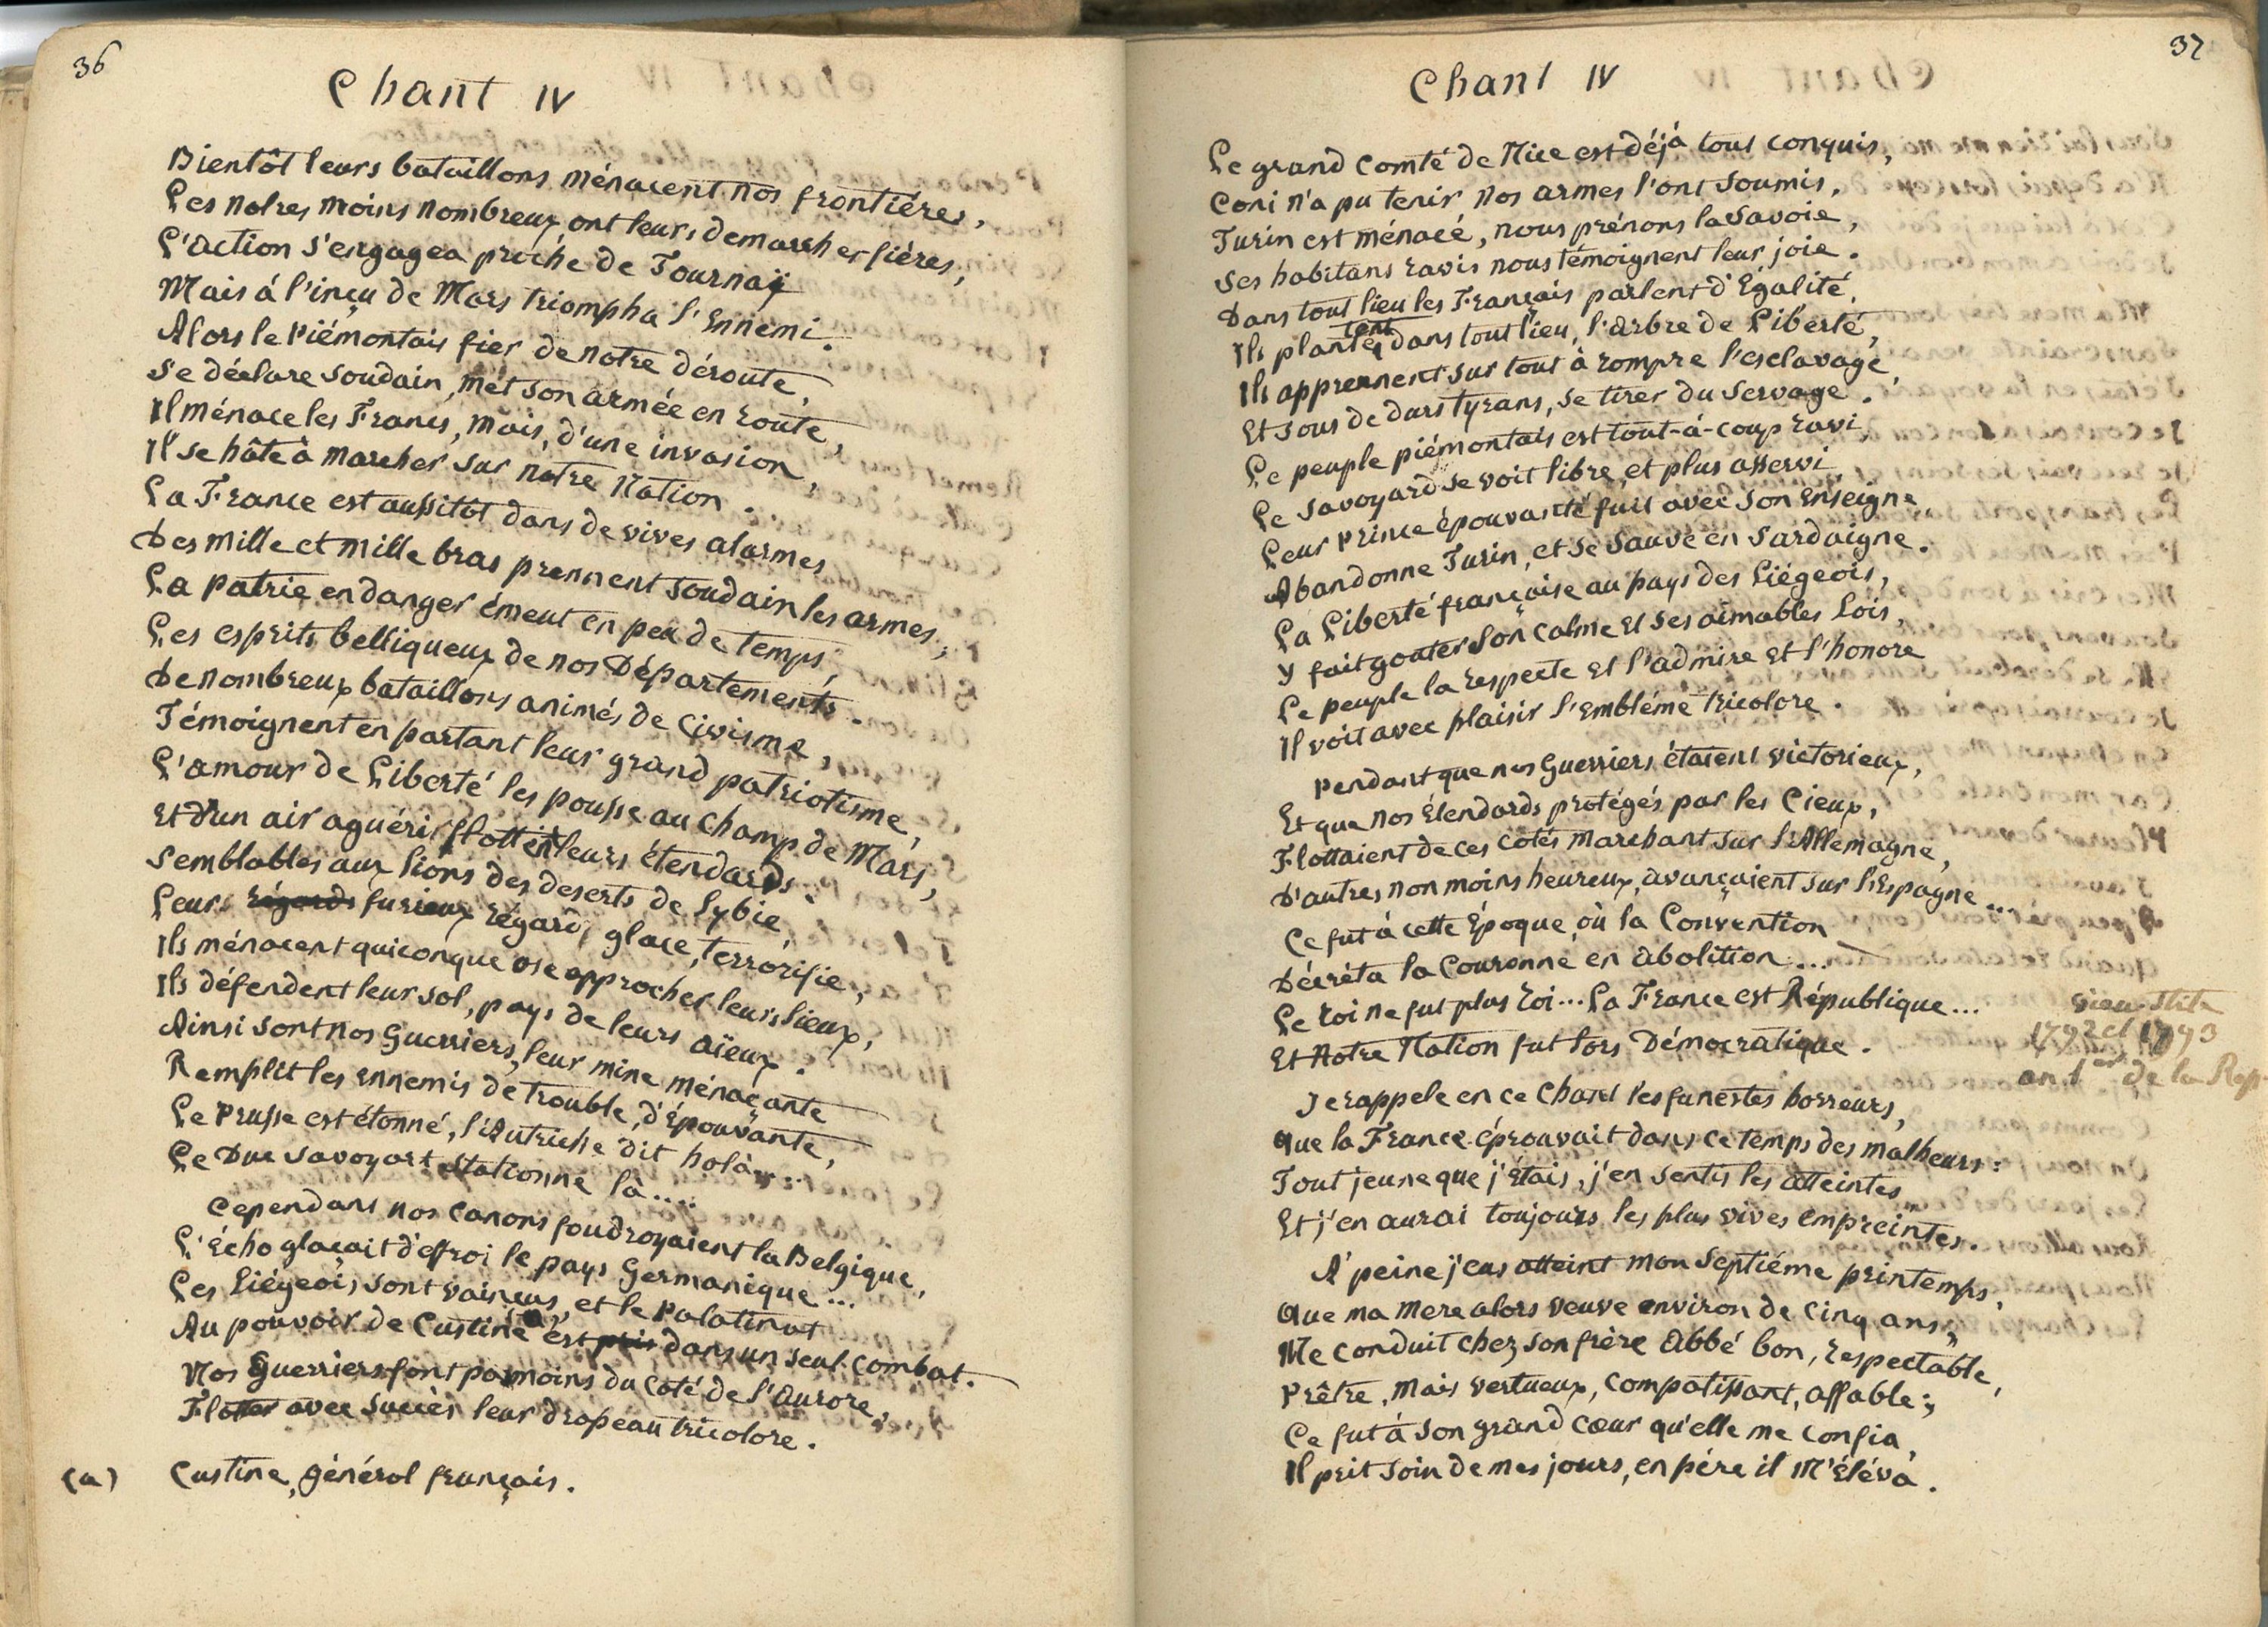 36
Chant IV
Bientôt leurs bataillons ménacent nos frontiéres,
Les notres moins nombreux ont leurs demarches fiéres,
L'action s'engagea proche de Tournaÿ
Mais á l'inçu de Mars triompha l'Ennemi.
Alors le Piémontais fier de notre déroute,
Se déclare soudain, mét son armée en route,
Il ménace les Francs, mais, d'une invasion,
Il se hâte à marcher sur notre Nation.
La France est aussitôt dans de vives alarmes
Des mille et mille bras prennent soudain les armes,
La Patrie en danger émeut en peu de temps,
Les esprits belliqueux de nos Départements.
De nombreux bataillons animés de Civisme,
Témoignent en partant leur grand patriotisme,
L'amour de Liberté les pousse au champ de Mars,
Et d'un air aguéri flottent leurs étendards.
Semblables aux lions des deserts de Lybie,
Leurs régards furieux régard, glace, terrorifie,
Ils ménacent quiconque ose approcher leurs lieux,
Ils défendent leur sol, pays de leurs aïeux.
Ainsi sont nos Guerriers, leur mine ménaçante
Remplit les Ennemis de trouble, d'Épouvante,
Le Prusse est étonné, l'Autriche dit holà....
Le Duc Savoyart stationne là....
Cependans nos canons foudroyaient la Belgique,
L'Écho glaçait d'effroi le pays Germanique...
Les Liégeois sont vaincus, et le Palatinat
Au pouvoir de Custine (a) est pris dans un seul combat.
Nos Guerriers font pas moins du coté de l'Aurore,
Flotter avec succès leur drapeau tricolore.
(a) Custine, général français.
37
Chant IV
Le grand comté de Nice est déjá tout conquis,
Coni n'a pu tenir nos armes l'ont soumis,
Turin est ménacé, nous prénons la Savoie,
Ses habitans ravis nous témoignent leur joie.
Dans tout lieu les Français parlent d'Égalité,
Ils plantent dans tout lieu, l'arbre de Liberté,
Ils apprennent sur tout à rompre l'esclavage,
Et sous de durs tyrans, se tirer du servage.
Le peuple piémontais est tout-á-coup ravi,
Le Savoyard se voit libre, et plus asservi
Leur Prince épouvanté fuit avec son Enseigne,
Abandonne Turin, et se sauve en Sardaigne.
La Liberté française au pays des Liégeois,
Y fait gouter son calme et ses aimables Lois,
Le peuple la respecte et l'admire et l'honore
Il voit avec plaisir l'embléme tricolore.
Pendant que nos Guerriers étaient victorieux,
Et que nos Étendards protégés par les Cieux,
Flottaient de ces cotés marchant sur l'Allemagne,
D'autres non moins heureux, avançaient sur l'Espagne...
Ce fut á cette Époque, où la Convention
Décréta la Couronne en abolition....
Le roi ne fut plus roi... La France est République...
1792 et 1793
Et Notre Nation fut lors Démocratique.
an 1er de la Rep.
Je rappele en ce Chant les funestes horreurs,
Que la France éprouvait dans ce temps des malheurs:
Tout jeune que j'étais, j'en sentis les atteintes,
Et j'en aurai toujours les plus vives empreintes.
A' peine j'eus atteint mon septiéme printemps,
Que ma mere alors veuve environ de cinq ans,
Me conduit chez son frère Abbé bon, respectable,
Prêtre, mais vertueux, compatissant, affable;
Ce fut á son grand cœur qu'elle me confia,
Il prit soin de mes jours, en pére il m'éléva.